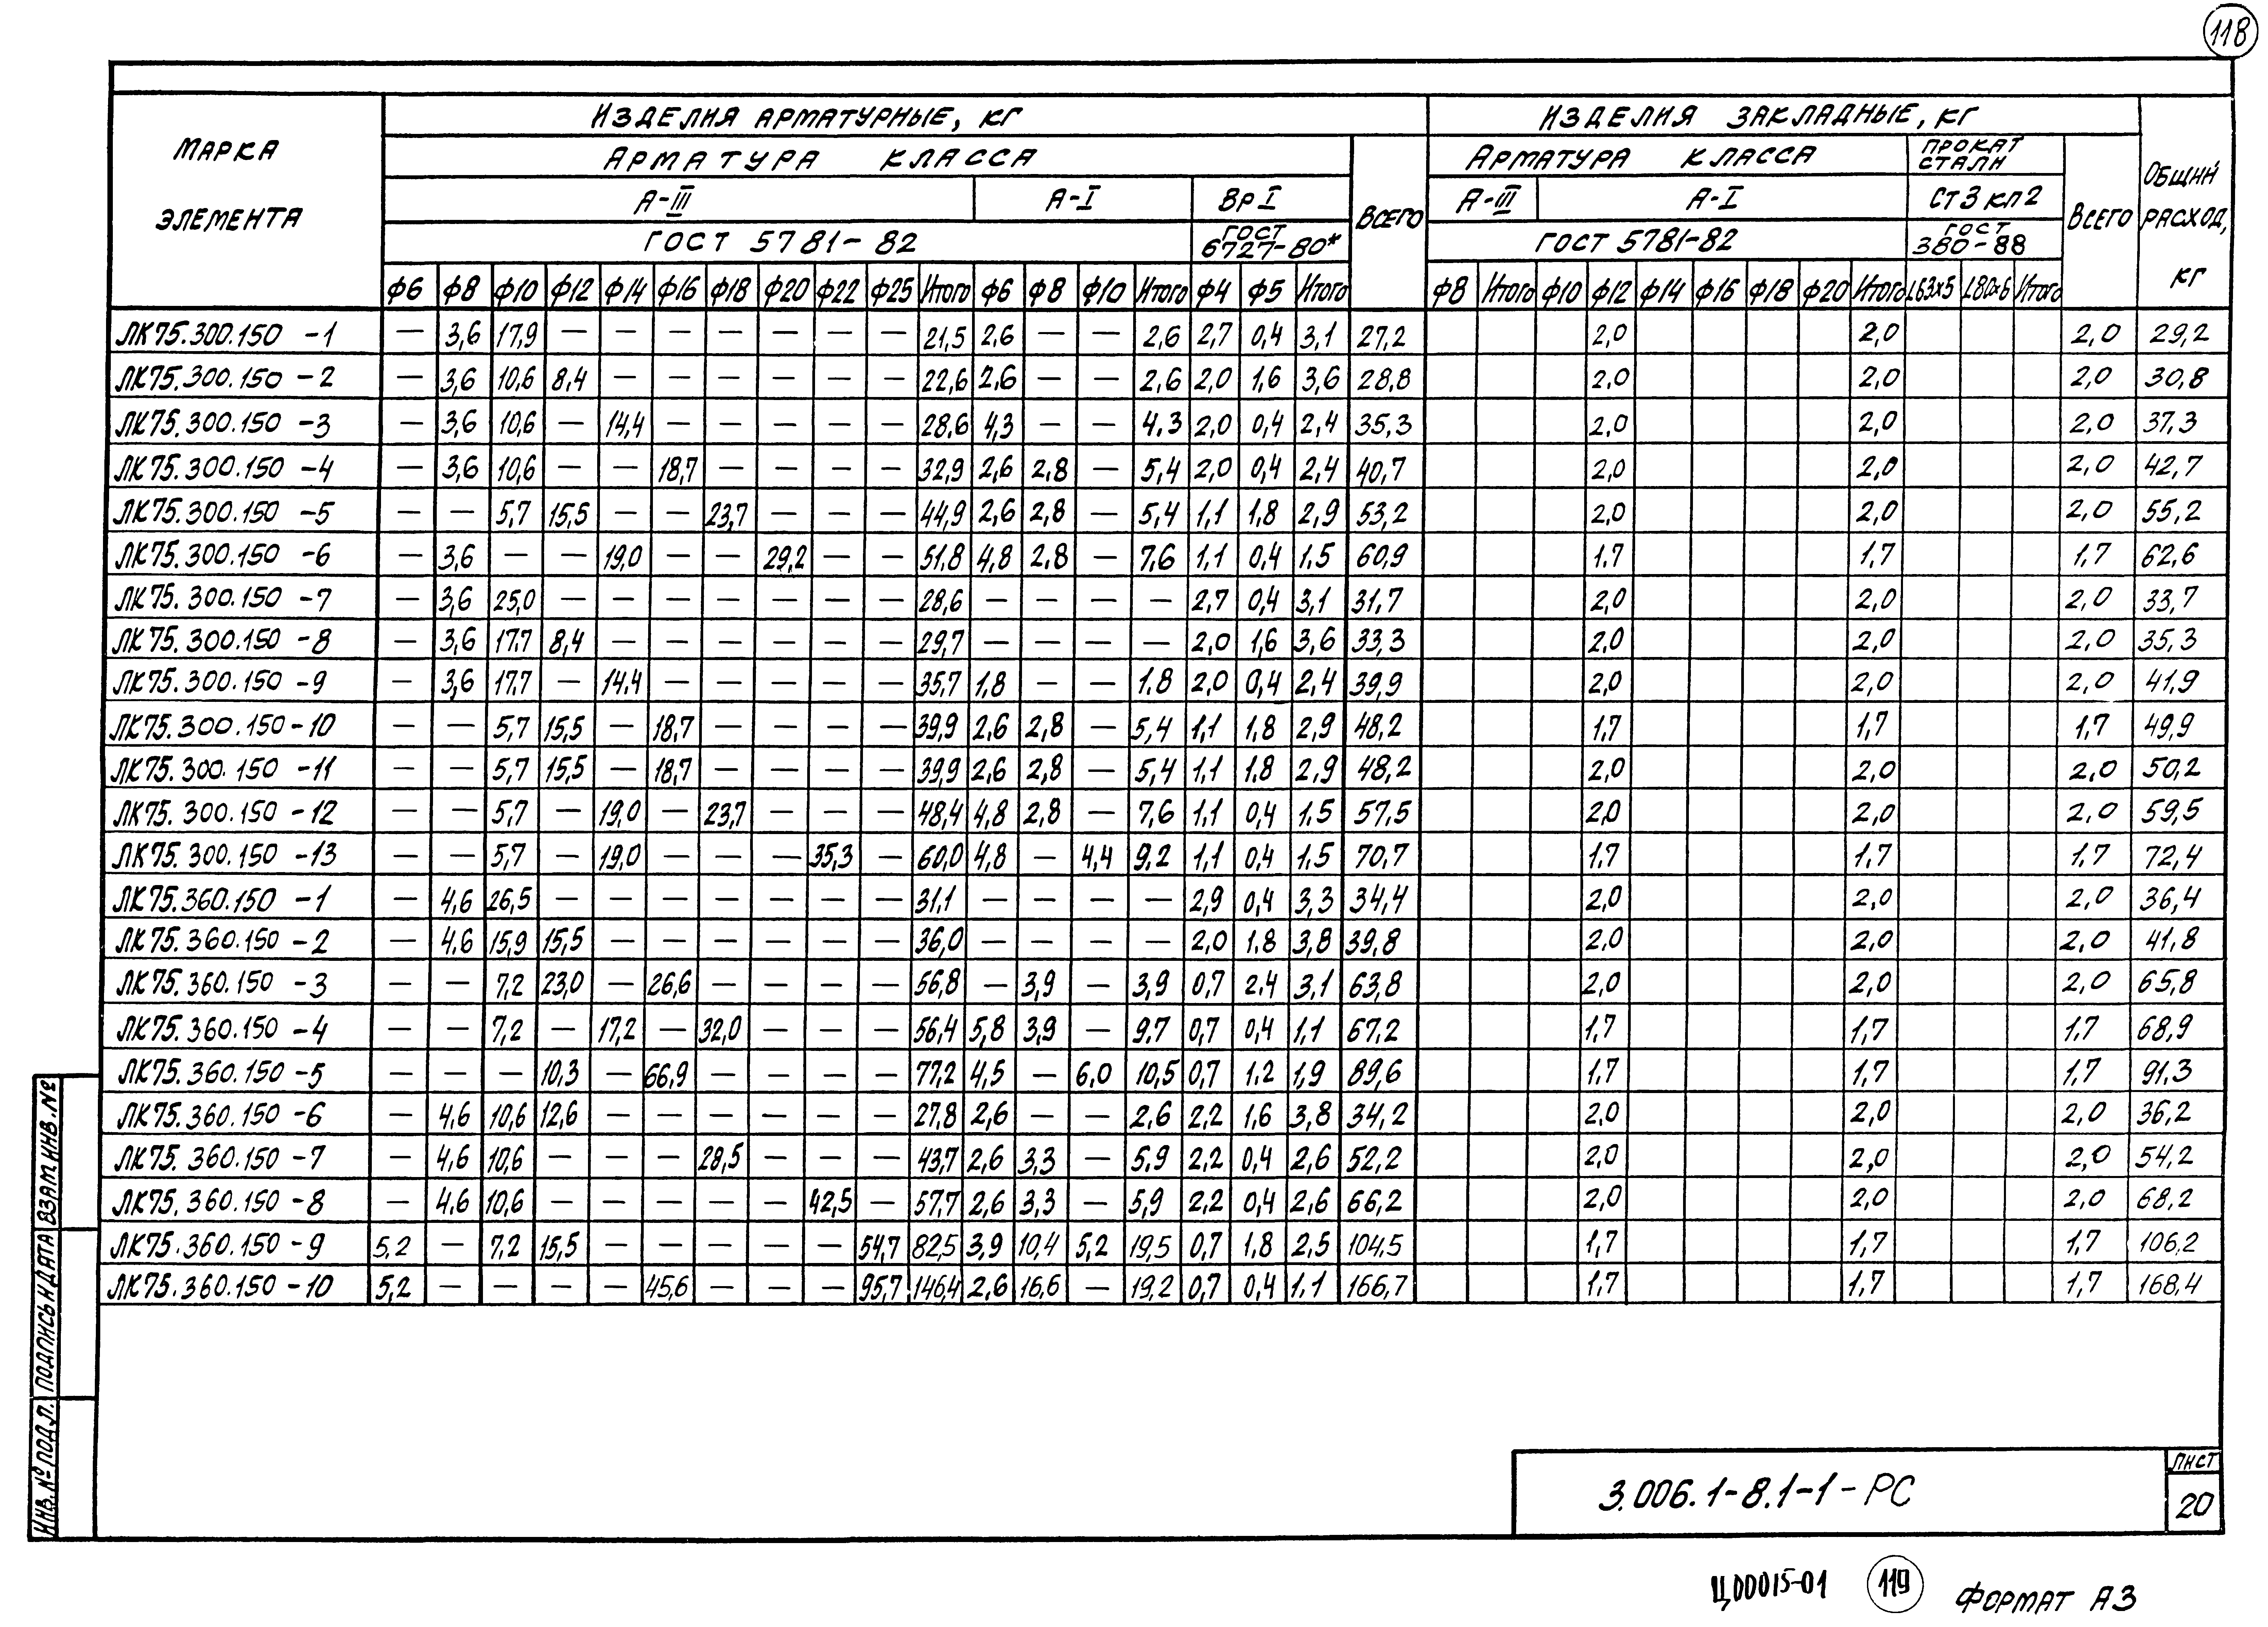 118
МАРКА ЭЛЕМЕНТА
ИЗДЕЛИЯ АРМАТУРНЫЕ, КГ
ИЗДЕЛИЯ ЗАКЛАДНЫЕ, КГ
ОБЩИЙ РАСХОД, КГ
АРМАТУРА КЛАССА
ВСЕГО
АРМАТУРА КЛАССА
ПРОКАТ СТАЛИ
ВСЕГО
А-III А-I ВрI А-III А-I СТ3кп2
ГОСТ 5781-82 ГОСТ 6727-80* ГОСТ 5781-82 ГОСТ 380-88
Ф6 Ф8 Ф10 Ф12 Ф14 Ф16 Ф18 Ф20 Ф22 Ф25 Итого Ф6 Ф8 Ф10 Итого Ф4 Ф5 Итого Ф8 Итого Ф10 Ф12 Ф14 Ф16 Ф18 Ф20 Итого L63x5 L80x6 Итого
ЛК75.300.150 -1 — 3,6 17,9 — — — — — — — 21,5 2,6 — — 2,6 2,7 0,4 3,1 27,2 2,0 2,0 2,0 29,2
ЛК75.300.150 -2 — 3,6 10,6 8,4 — — — — — — 22,6 2,6 — — 2,6 2,0 1,6 3,6 28,8 2,0 2,0 2,0 30,8
ЛК75.300.150 -3 — 3,6 10,6 — 14,4 — — — — — 28,6 4,3 — — 4.3 2,0 0,4 2,4 35,3 2,0 2,0 2,0 37,3
ЛК75.300.150 -4 — 3,6 10,6 — — 18,7 — — — — 32,9 2,6 2,8 — 5,4 2,0 0,4 2,4 40,7 2,0 2,0 2,0 42,7
ЛК75.300.150 -5 — — 5,7 15,5 — — 23,7 — — — 44,9 2,6 2,8 — 5,4 1,1 1,8 2,9 53,2 2,0 2,0 2,0 55,2
ЛК75.300.150 -6 — 3,6 — — 19,0 — — 29,2 — — 51,8 4,8 2,8 — 7,6 1,1 0,4 1,5 60,9 1,7 1,7 1,7 62,6
ЛК75.300.150 -7 — 3,6 25,0 — — — — — — — 28,6 — — — — 2,7 0,4 3,1 31,7 2,0 2,0 2,0 33,7
ЛК75.300.150 -8 — 3,6 17,7 8,4 — — — — — — 29,7 — — — — 2,0 1,6 3,6 33,3 2,0 2,0 2,0 35,3
ЛК75.300.150 -9 — 3,6 17,7 — 14,4 — — — — — 35,7 1,8 — — 1.8 2,0 0,4 2,4 39,9 2,0 2,0 2,0 41,9
ЛК75.300.150-10 — — 5,7 15,5 — 18,7 — — — — 39,9 2,6 2,8 — 5,4 1,1 1,8 2,9 48,2 1,7 1,7 1,7 49,9
ЛК75.300.150 -11 — — 5,7 15,5 — 18,7 — — — — 39,9 2,6 2,8 — 5,4 1,1 1.8 2,9 48,2 2,0 2,0 2,0 50,2
ЛК75.300.150 -12 — — 5,7 — 19,0 — 23,7 — — — 48,4 4,8 2,8 — 7,6 1,1 0,4 1,5 57,5 2,0 2,0 2,0 59,5
ЛК75.300.150 -13 — — 5,7 — 19,0 — — — 35,3 — 60,0 4,8 — 4,4 9,2 1,1 0,4 1,5 70,7 1,7 1,7 1,7 72,4
ЛК75.360.150 -1 — 4,6 26,5 — — — — — — — 31,1 — — — — 2,9 0,4 3,3 34,4 2,0 2,0 2,0 36,4
ЛК75.360.150 -2 — 4,6 15,9 15,5 — — — — — — 36,0 — — — — 2,0 1.8 3,8 39,8 2,0 2,0 2,0 41,8
ЛК75.360.150 -3 — — 7,2 23,0 — 26,6 — — — — 56,8 — 3,9 — 3,9 0,7 2.4 3,1 63,8 2,0 2,0 2,0 65,8
ЛК75.360.150 -4 — — 7,2 — 17,2 — 32,0 — — — 56,4 5,8 3,9 — 9.7 0,7 0,4 1,1 67,2 1,7 1,7 1.7 68,9
ЛК75.360.150 -5 — — — 10,3 — 66,9 — — — — 77,2 4,5 — 6,0 10,5 0,7 1.2 1,9 89,6 1.7 1,7 1,7 91,3
ЛК75.360.150 -6 — 4,6 10,6 12,6 — — — — — — 27,8 2,6 — — 2,6 2,2 1,6 3,8 34,2 2,0 2,0 2,0 36,2
ЛК75.360.150 -7 — 4,6 10,6 — — — 28,5 — — — 43,7 2,6 3,3 — 5,9 2,2 0,4 2,6 52,2 2,0 2,0 2,0 54,2
ЛК75.360.150 -8 — 4,6 10,6 — — — — — 42,5 — 57,7 2,6 3,3 — 5,9 2,2 0,4 2,6 66,2 2,0 2,0 2,0 68,2
ЛК75.360.150 -9 5,2 — 7,2 15,5 — — — — — 54,7 82,5 3,9 10,4 5,2 19,5 0,7 1,8 2,5 104,5 1,7 1,7 1,7 106,2
ЛК75.360.150 -10 5,2 — — — — 45,6 — — — 95,7 146,4 2,6 16,6 — 19,2 0,7 0,4 1,1 166,7 1,7 1,7 1,7 168,4
ИНВ. № ПОДЛ. ПОДПИСЬ И ДАТА ВЗАМ. ИНВ. №
3.006.1-8.1-1-РС
ЛИСТ
20
Ц00015-01 119 ФОРМАТ А3